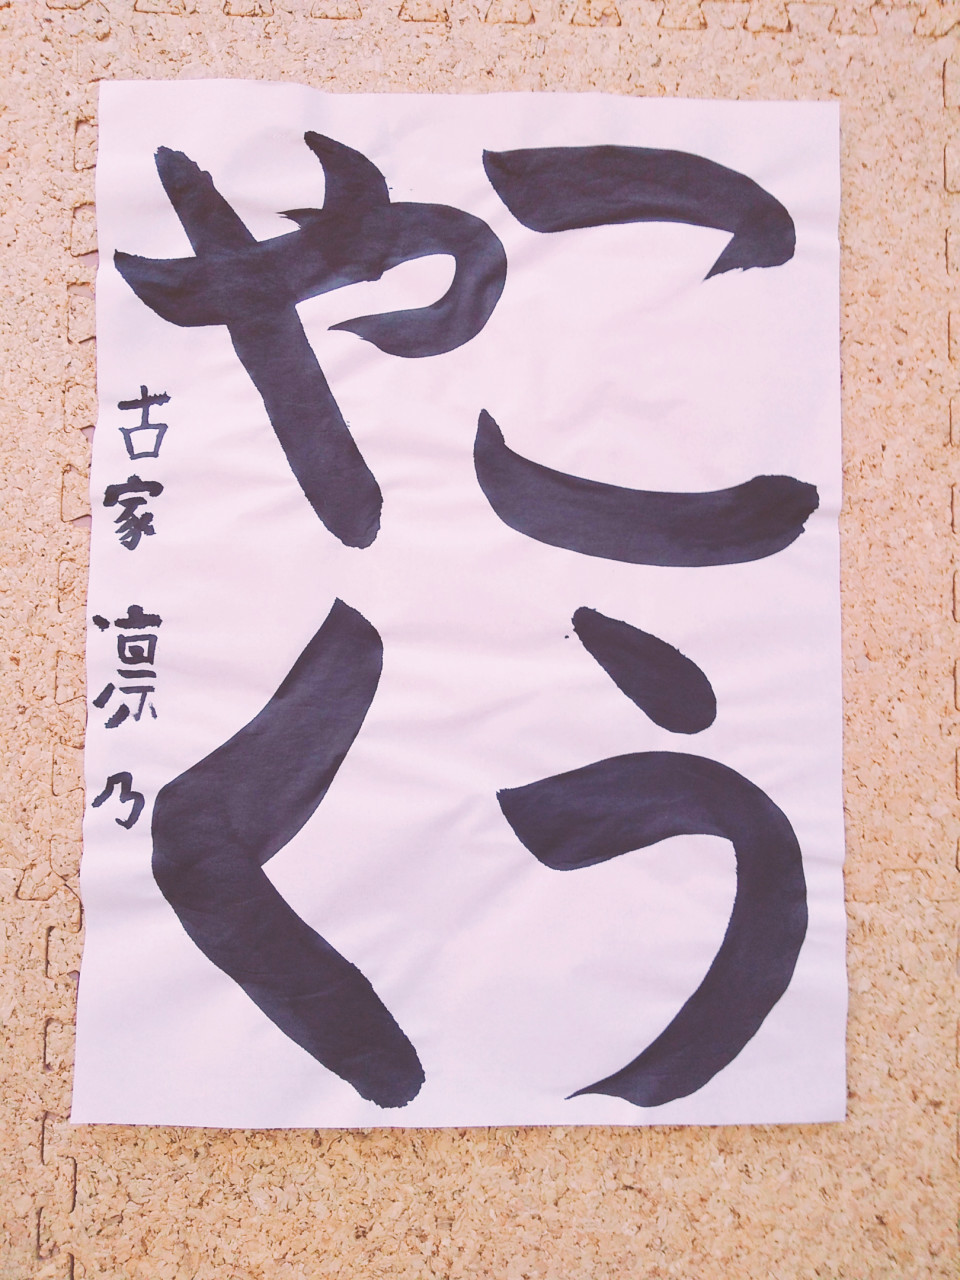 こう
やく
古家凛乃